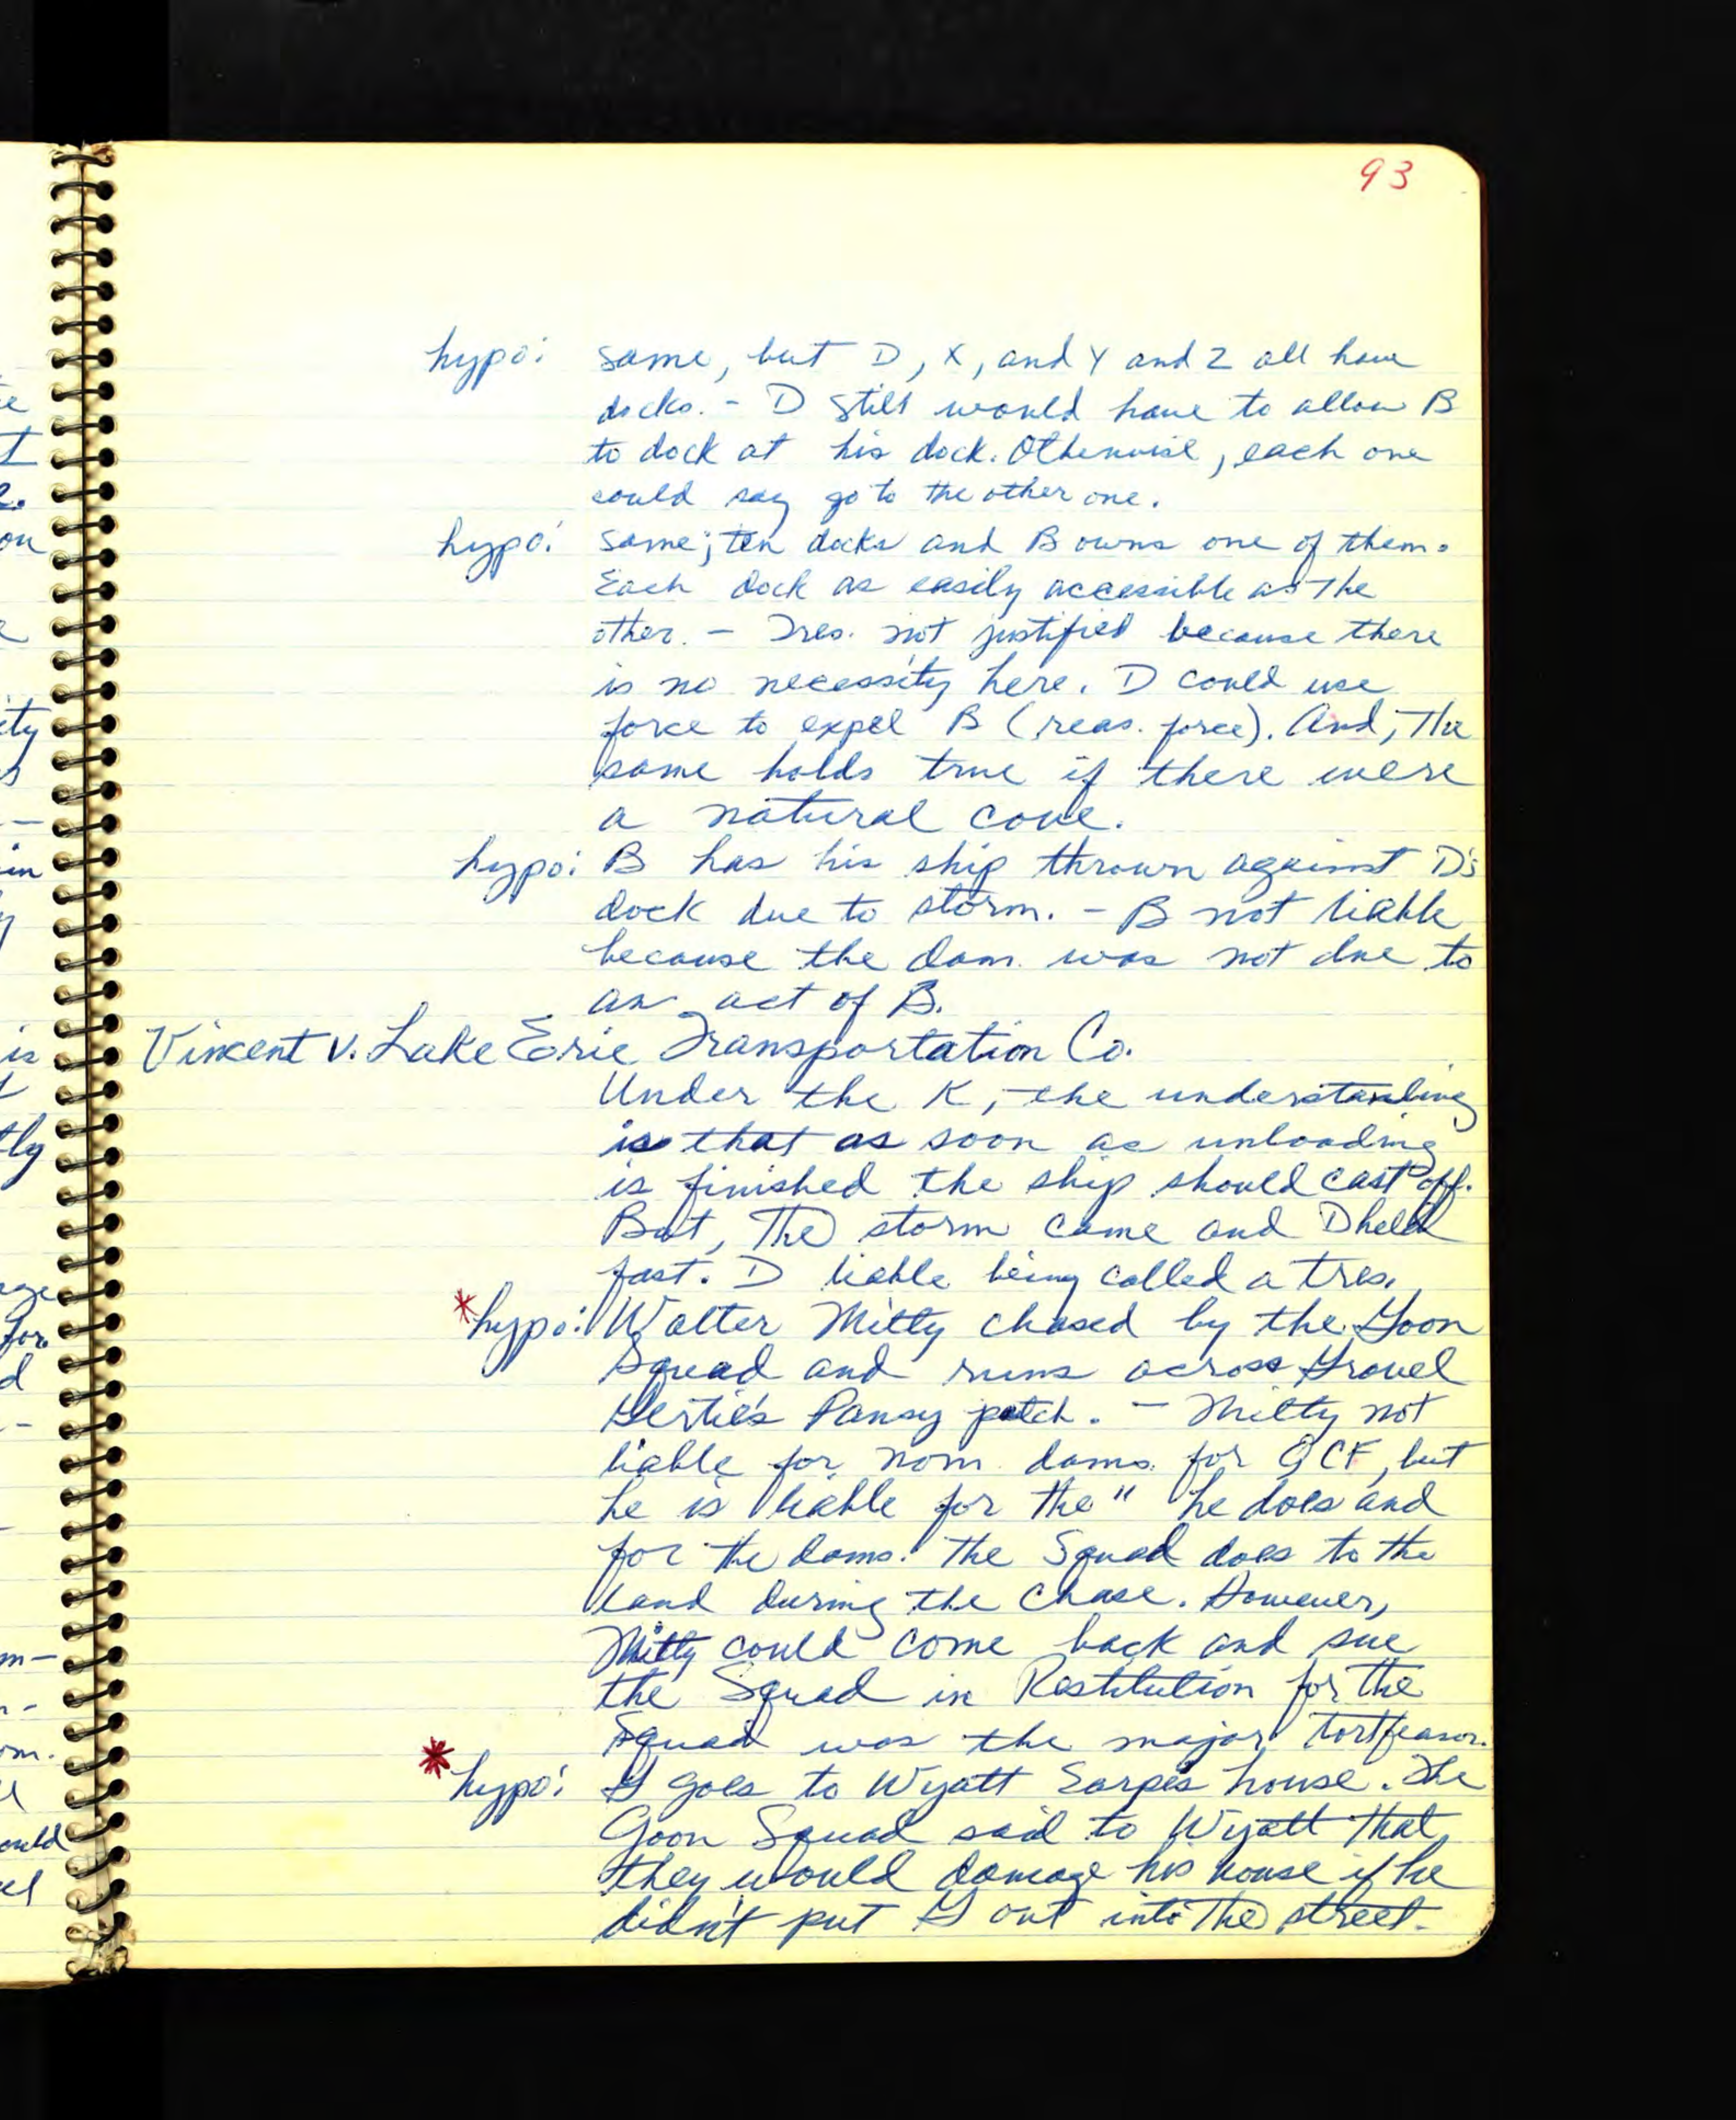 93
hypo: same, but D, X, and Y and Z all have
docks. - D still would have to allow B
to dock at his dock. Otherwise, each one
could say go to the other one.
hypo: same; ten docks and B owns one of them.
Each dock as easily accessible as the
other. - Tres. not justified because there
is no necessity here. D could use
force to expel B (reas. force). And, the
same holds true if there were
a natural cove.
hypo: B has his ship thrown against D's
dock due to storm. - B not liable
because the dam. was not due to
an act of B.
Vincent v. Lake Erie Transportation Co.
Under the K, the understanding
is that as soon as unloading
is finished the ship should cast off.
But, the storm came and D held
fast. D liable being called a tres.
*hypo: Walter Mitty chased by the Goon
Squad and runs across Gravel
Gertie's Pansy patch. - Mitty not
liable for nom. dams. for QCF, but
he is liable for the " he does and
for the dams. the Squad does to the
land during the chase. However,
Mitty could come back and sue
the Squad in Restitution for the
Squad was the major tortfeasor.
*hypo: G goes to Wyatt Earp's house. The
Goon Squad said to Wyatt that
they would damage his house if he
didn't put G out into the street.